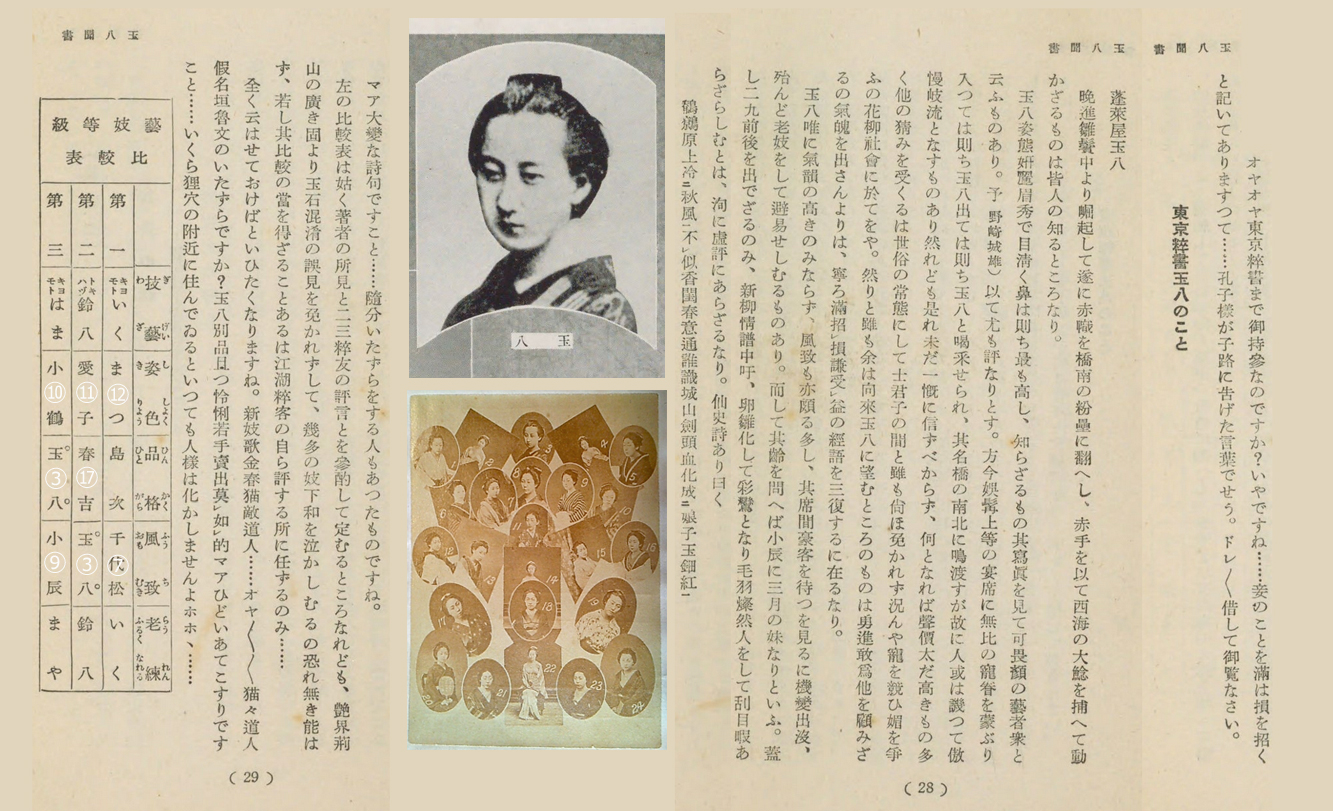 玉八聞書
オヤオヤ東京粹書まで御持參なのですか?いやですね……妾のことを滿は損を招く
と記いてありますつて……孔子樣が子路に告げた言葉でせう。ドレ〳〵借して御覽なさい。
東京粹書玉八のこと
玉八聞書
蓬萊屋玉八
晩進雛鬟中より崛起して遂に赤幟を橋南の粉壘に翻へし、赤手を以て西海の大鯰を捕へて動
かざるものは皆人の知るところなり。
玉八姿態姸麗眉秀で目淸く鼻は則ち最も高し、知らざるもの其寫眞を見て可畏顏の藝者衆と
云ふものあり。予 野崎城雄)以て尤も評なりとす。方今娯髩上等の宴席に無比の寵眷を蒙ぶり
入つては則ち玉八出ては則ち玉八と喝釆せられ、其名橋の南北に鳴渡すが故に人或は譏つて傲
慢岐流となすものあり然れども是れ未だ一慨に信ずべからず、何となれば聲價太だ高きもの多
く他の猜みを受くるは世俗の常態にして士君子の間と雖も尙ほ免かれず況んや寵を競ひ媚を爭
ふの花柳社會に於てをや。然りと雖も余は向來玉八に望むところのものは勇進敢爲他を顧みざ
るの氣魄を出さんよりは、寧ろ滿招㆑損謙受㆑益の經語を三復するに在るなり。
玉八唯に氣韻の高きのみならず、風致も亦頗る多し、其席間豪客を待つを見るに機變出沒、
殆んど老妓をして避易せしむるものあり。而して其齡を問へば小辰に三月の妹なりといふ。蓋
し二九前後を出でざるのみ、新柳情譜中吁、卵雛化して彩鸞となり毛羽燦然人をして刮目暇あ
らざらしむとは、洵に虛評にあらざるなり。仙史詩あり曰く
鶺鴒原上冷㆓秋風㆒不㆑似香閨春意通誰識城山劍頭血化成㆓娘子玉釵紅㆒
(28)
玉八
2
3
4
5
6
7
9
10
12
13
14
15
16
18
19
20
21
22
23
24
玉八聞書
マア大變な詩句ですこと……隨分いたずらをする人もあつたものですね。
左の比較表は姑く著者の所見と二三粹友の評言とを參酌して定むるところなれども、艷界荊
山の廣き固より玉石混淆の誤見を免かれずして、幾多の妓下和を泣かしむるの恐れ無き能は
ず、若し其比較の當を得ざることあるは江湖粹客の自ら評する所に任ずるのみ……
全く云はせておけばといひたくなりますね。新妓歌金春猫敵道人……オヤ〳〵〳〵猫々道人
假名垣魯文のいたずらですか?玉八別品且つ怜悧若手賣出莫㆑如㆑的マアひどいあてこすりです
こと……いくら狸穴の附近に住んでゐるといつても人樣は化かしませんよホホ、……
藝妓等級比較表
技藝 姿色 品格 風致 老練
わざ ぎげい しき しよく りよう ひとがら ひんかく おもむき ふうち ふるくなれる らうれん
第一 キヨモト いく ま⑫つ 島次 千代⑦松 いく
第二 トキハヅ 鈴八 愛⑪子 春⑰吉 玉③八 鈴八
第三 キヨモト はま 小⑩鶴 玉③八 小⑨辰 まや
(29)